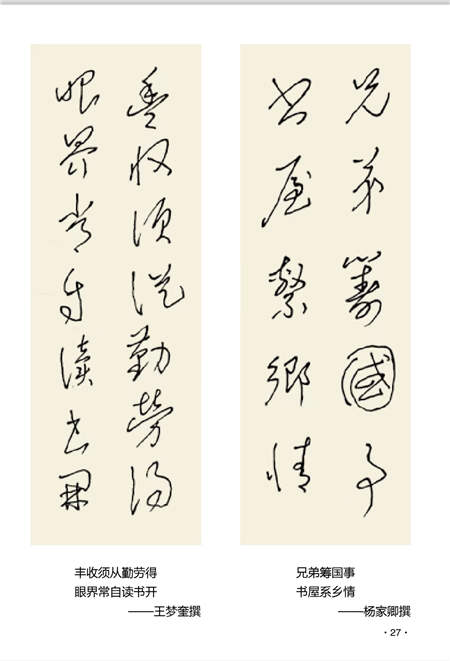 豐收须從勤勞得
眼界常自读书開
兄弟籌國事
书屋繫鄉情
丰收须从勤劳得
眼界常自读书开
——王梦奎撰
兄弟筹国事
书屋系乡情
——杨家卿撰
·27·